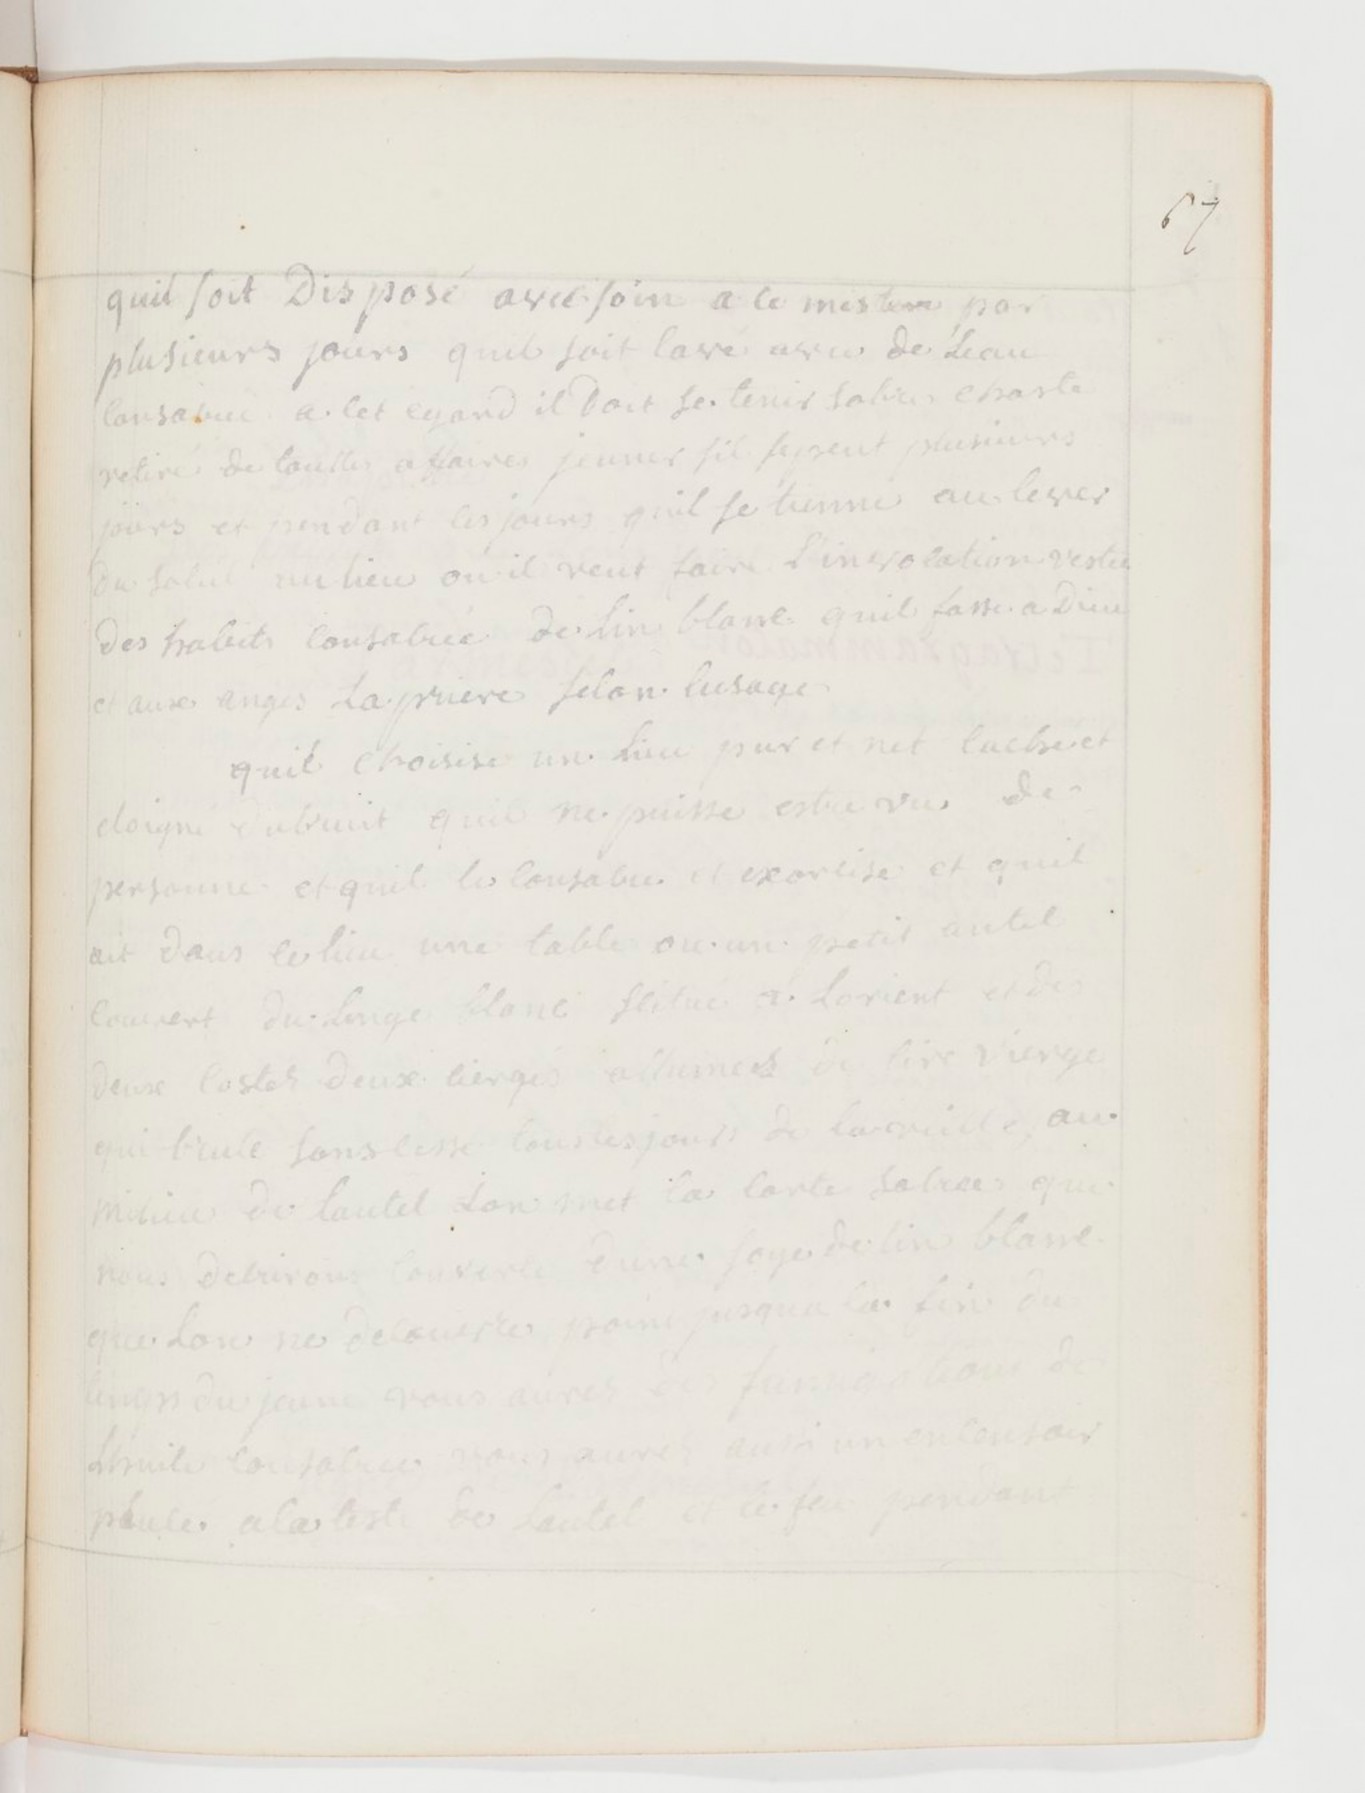 67
quil soit Disposé avec soin a ce mistere par
plusieurs jours quil soit lavé avec de Leau
consacrée a cet egard il Doit se tenir sobre chaste
retiré de touttes affaires jeuner sil se peut plusieurs
jours et pendant les jours quil se tienne au lever
du soleil au lieu ou il veut faire L'invocation vestu
des habits consacrée de lin blanc quil fasse a Dieu
et aux anges La priere selon lusage
quil choisise un Lieu pur et net caché et
eloigné du bruit quil ne puisse estre vu de
personne et quil le consacre et exorcise et quil
ait dans ce lieu une table ou un petit autel
couvert du Linge blanc situé a Lorient et des
deux costés deux cierges allumés de cire vierge
qui brule sans cesse tous les jours de la veille au
milieu de lautel Lon met la carte sacrée que
nous decrirons couverte dune soye de lin blanc
que Lon ne decouvre point jusqua la fin du
temps du jeune vous aurés des fumigations de
Lhuile consacrée vous aurés aussi un encensoir
placé a la teste de Lautel et le feu pendant